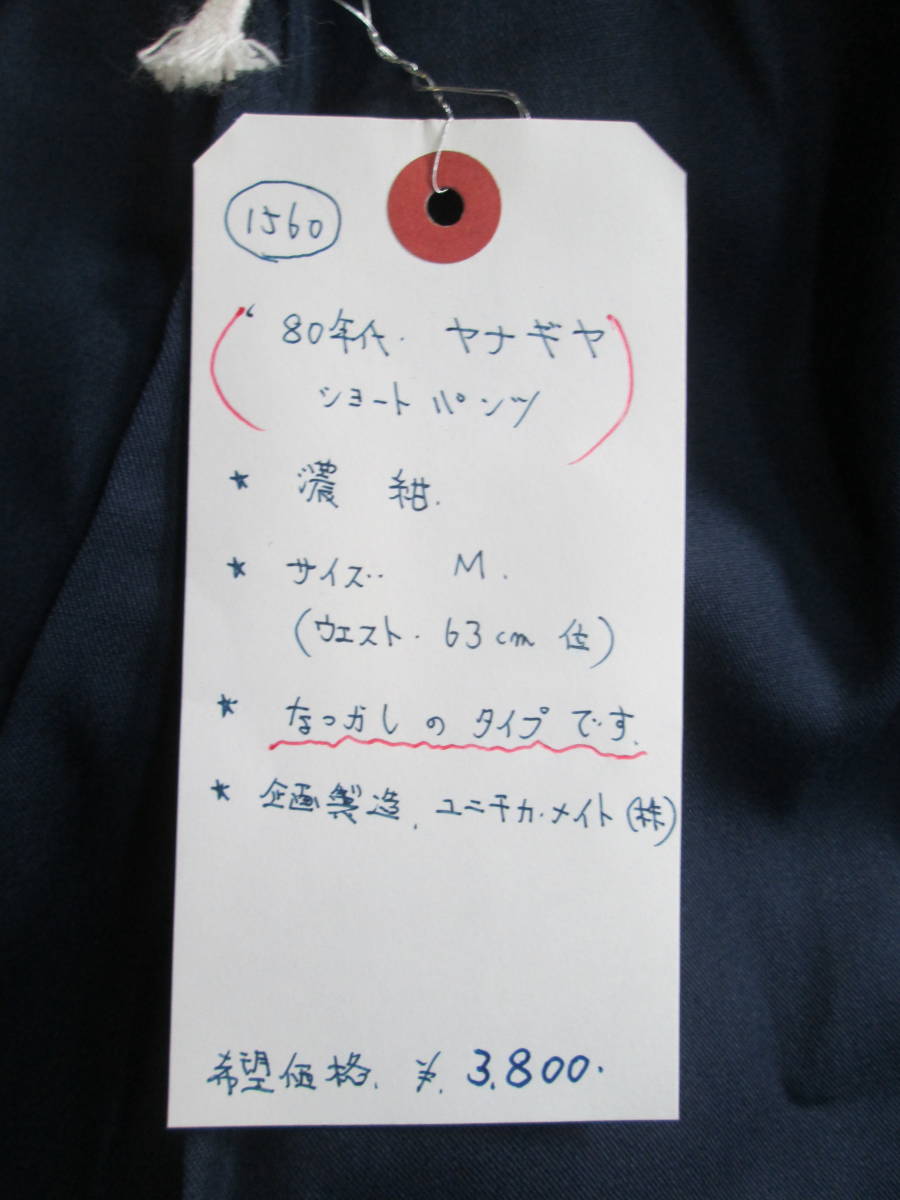 1560
'80年代. ヤナギヤ
ショートパンツ
★ 濃紺.
★ サイズ.. M.
(ウエスト. 63cm位)
★ なつかしのタイプです.
★ 企画製造. ユニチカ.メイト(株)
希望価格. ¥. 3.800.